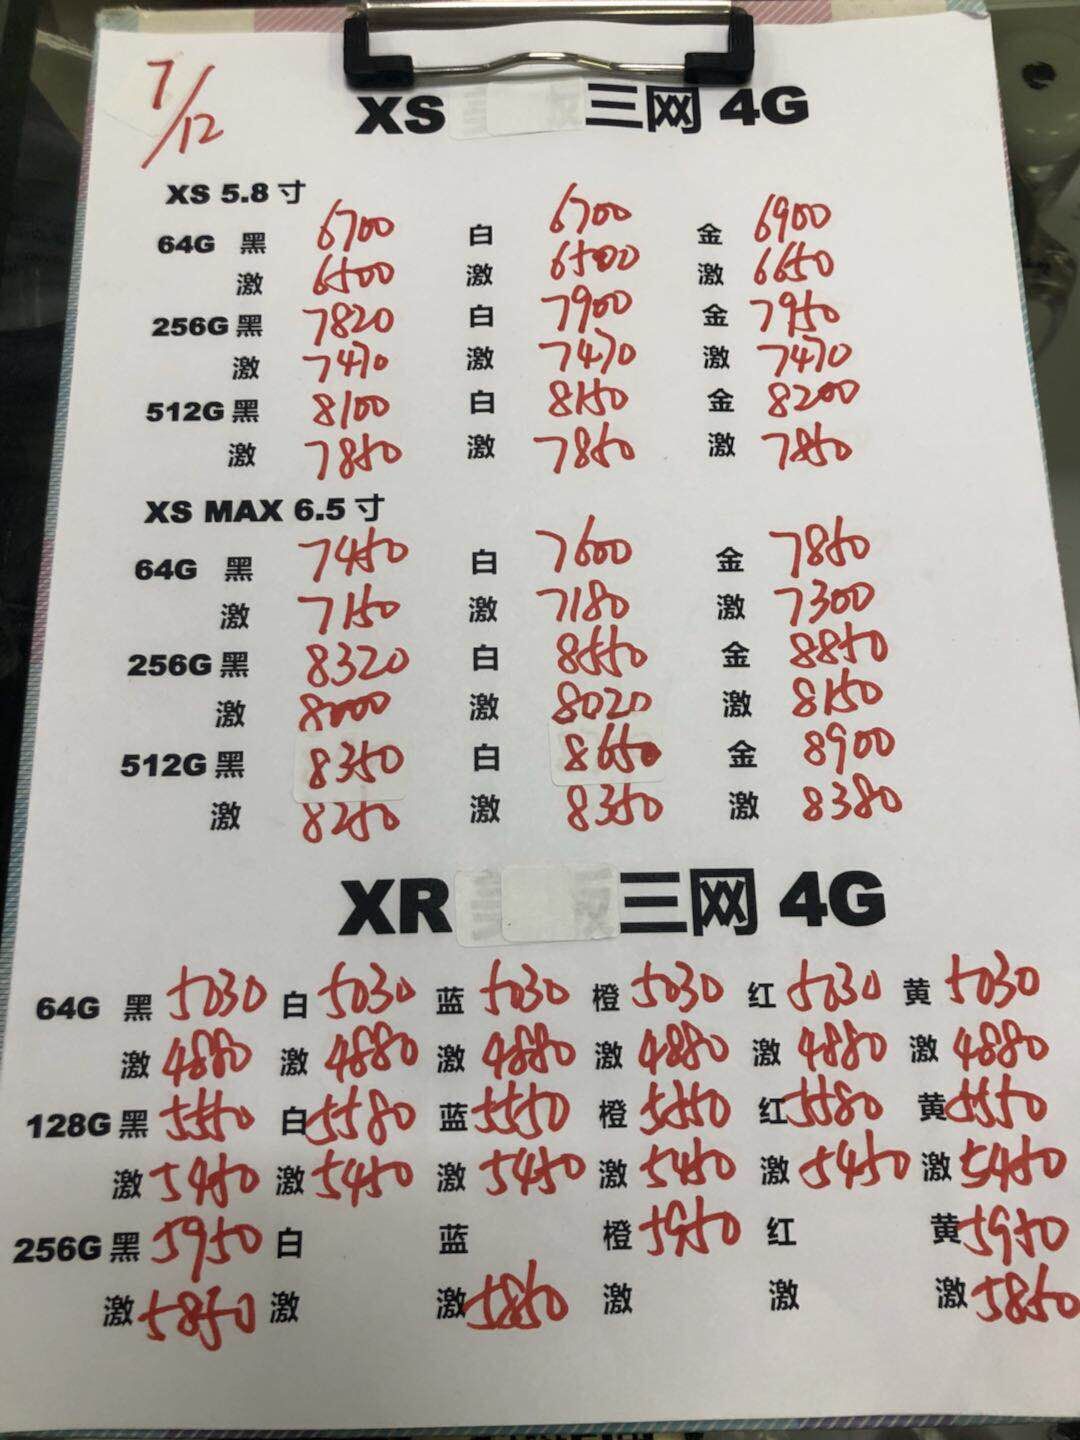 7/12
XS 三网 4G
XS 5.8 寸
64G 黑 6700 白 6700 金 6900
激 6500 激 6500 激 6650
256G 黑 7820 白 7900 金 7950
激 7470 激 7470 激 7470
512G 黑 8100 白 8150 金 8200
激 7850 激 7850 激 7850
XS MAX 6.5 寸
64G 黑 7450 白 7600 金 7850
激 7150 激 7180 激 7300
256G 黑 8320 白 8550 金 8850
激 8000 激 8020 激 8150
512G 黑 8350 白 8650 金 8900
激 8250 激 8350 激 8380
XR 三网 4G
64G 黑 5030 白 5030 蓝 5030 橙 5030 红 5030 黄 5030
激 4880 激 4880 激 4880 激 4880 激 4880 激 4880
128G 黑 5550 白 5580 蓝 5550 橙 5550 红 5580 黄 5550
激 5450 激 5450 激 5450 激 5450 激 5450 激 5450
256G 黑 5950 白 蓝 橙 5950 红 黄 5950
激 5850 激 激 5850 激 激 激 5850